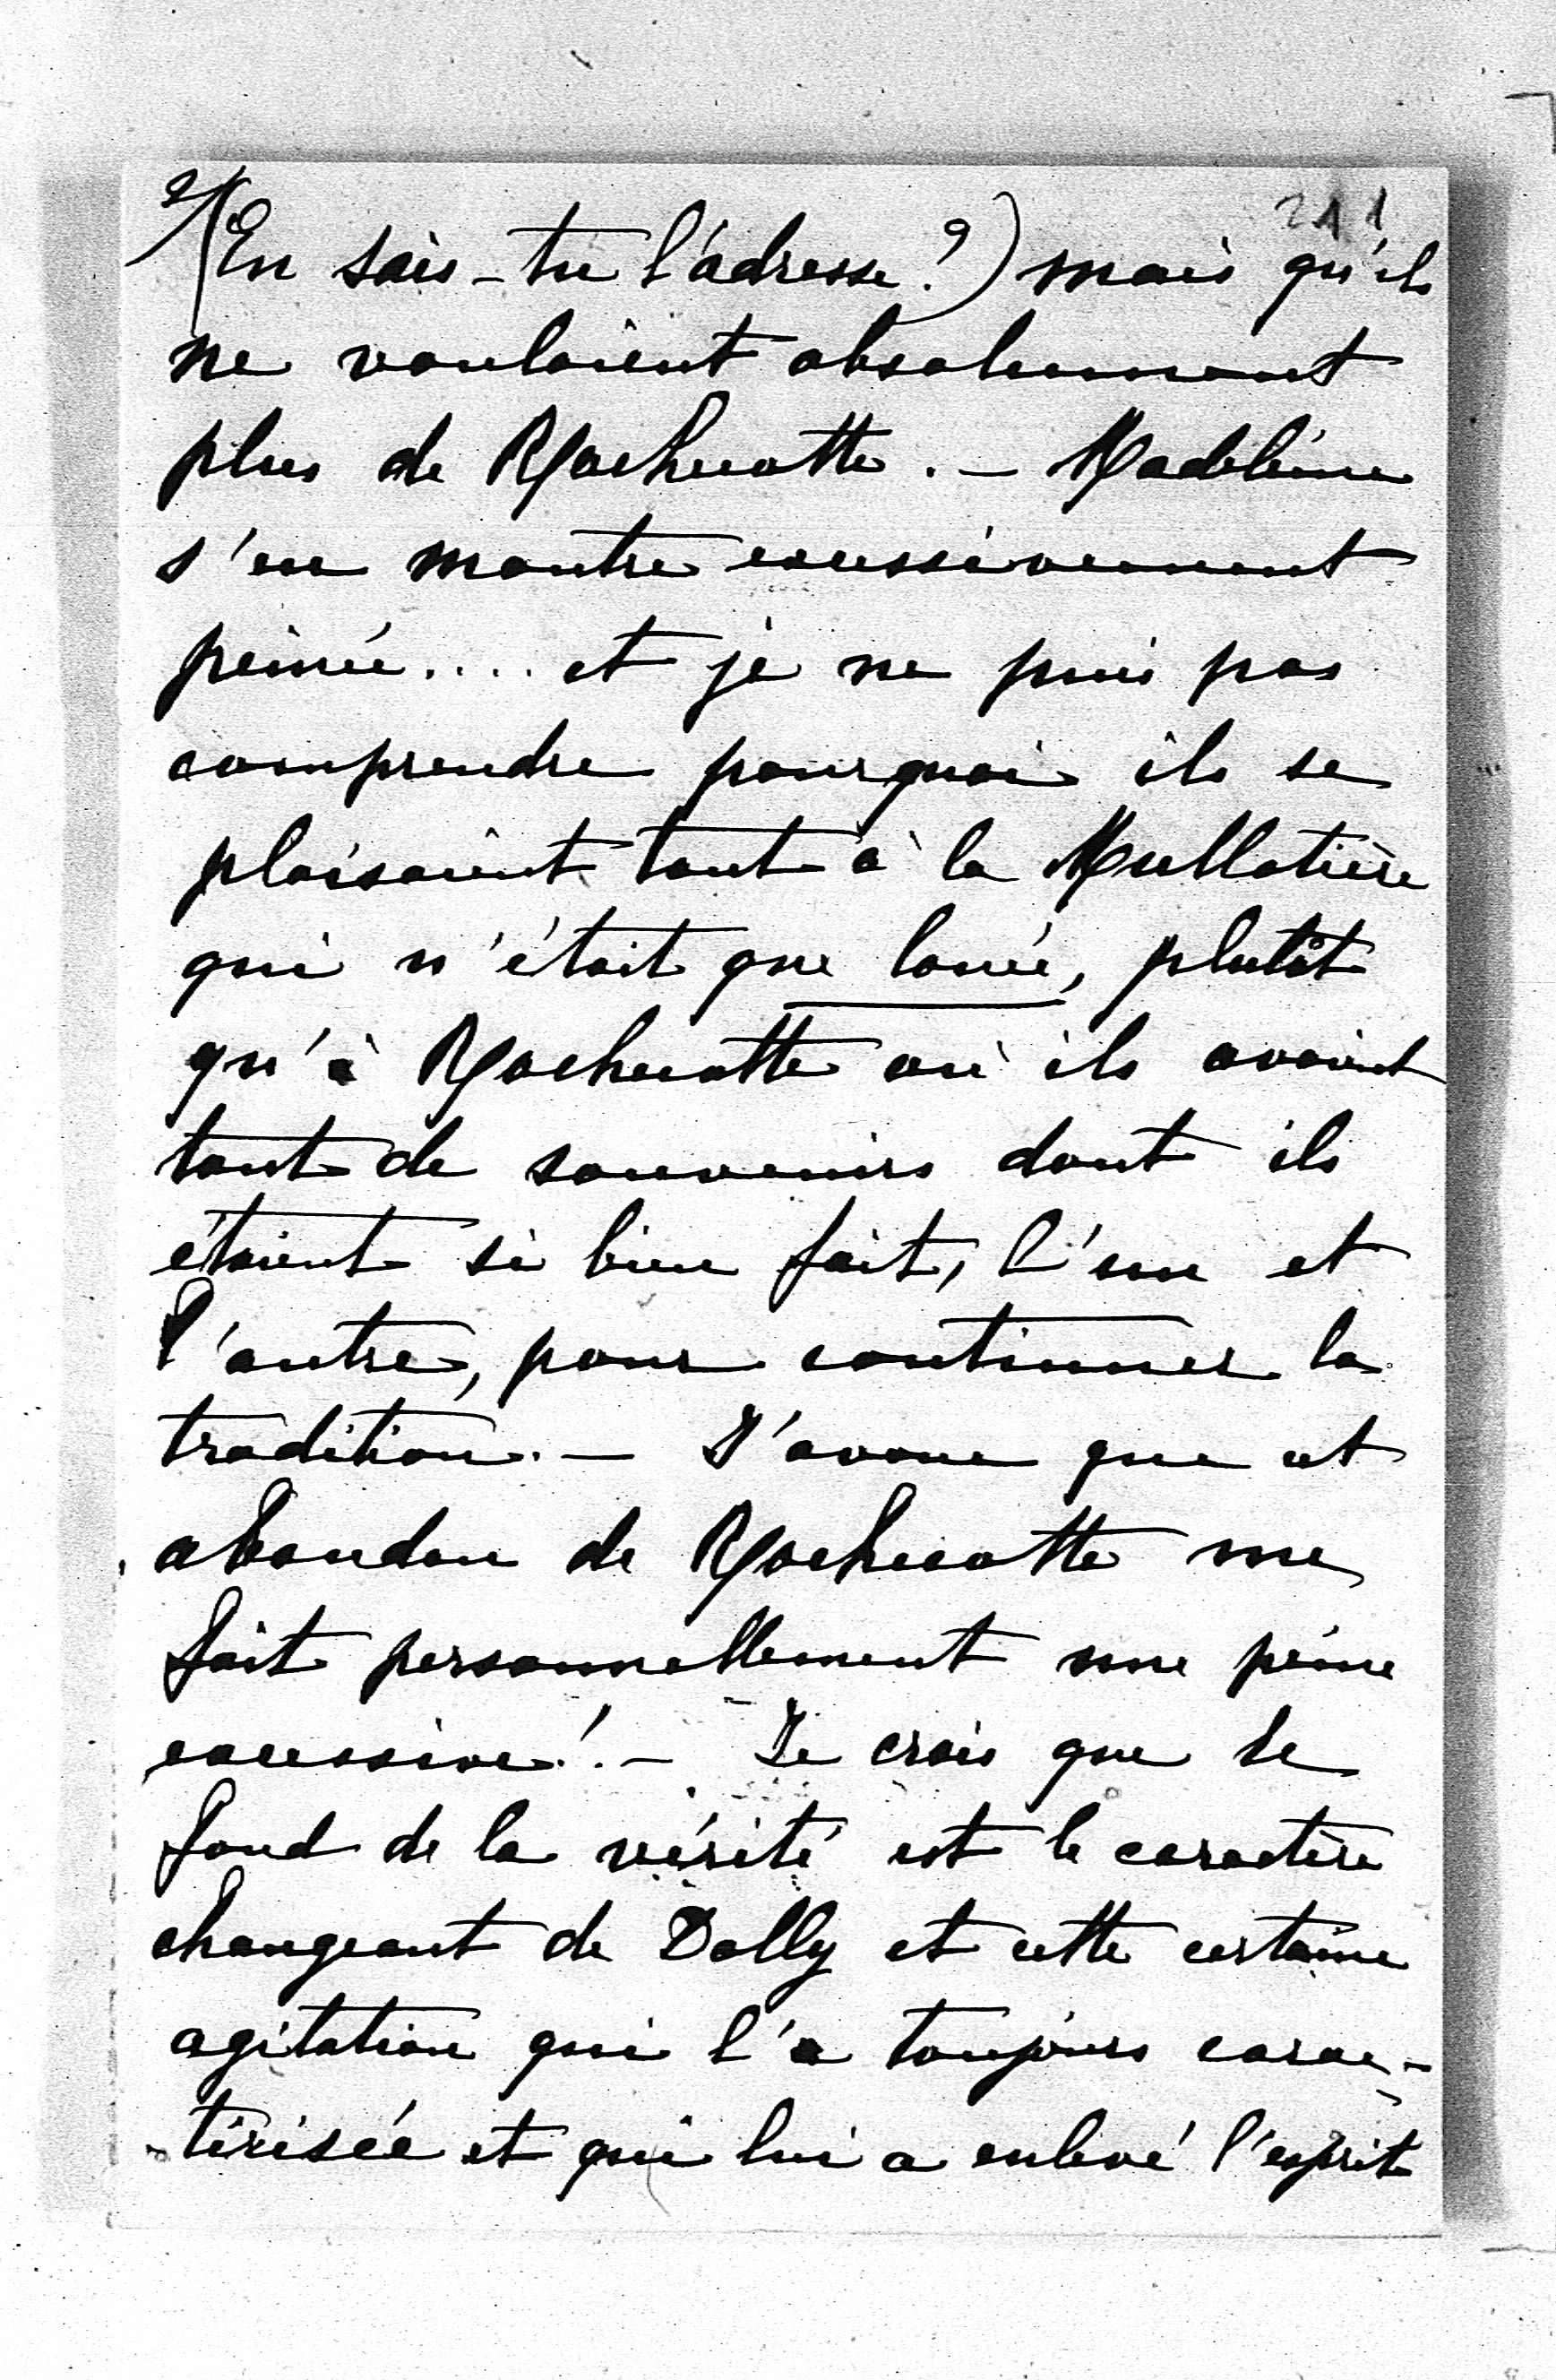 2/ 211
(En sais-tu l'adresse?) mais qu'ils
ne voulaient absolument
plus de Rochecotte. — Madeleine
s'en montre excessivement
peinée.... et je ne puis pas
comprendre pourquoi ils se
plaisaient tant à la Mullotière
qui n'était que louée, plutôt
qu'à Rochecotte où ils avaient
tant de souvenirs dont ils
étaient si bien fait, l'un et
l'autre, pour continuer la
tradition. — J'avoue que cet
abandon de Rochecotte me
fait personnellement une peine
excessive! — Je crois que le
fond de la vérité est le caractère
changeant de Dolly et cette certaine
agitation qui l'a toujours carac-
-térisée et qui lui a enlevé l'esprit